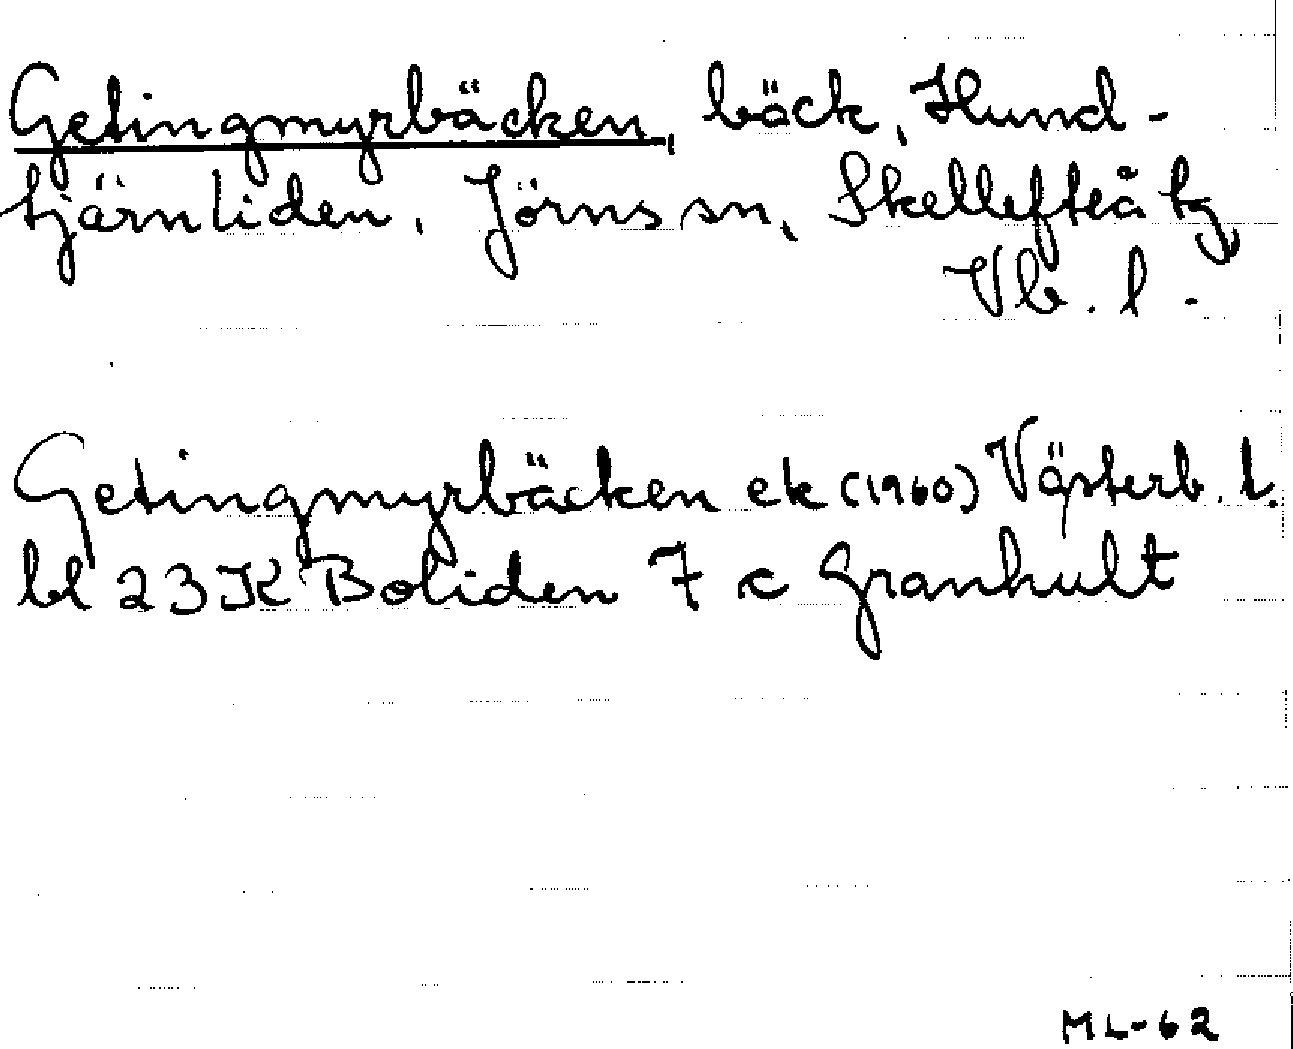 Getingmyrbäcken, bäck, Hund-
tjärnliden, Jörns sn, Skellefteå tg
Vb. l.
Getingmyrbäcken ek (1960) Västerb. l.
bl 23 K Boliden 7 c Granhult
ML-62